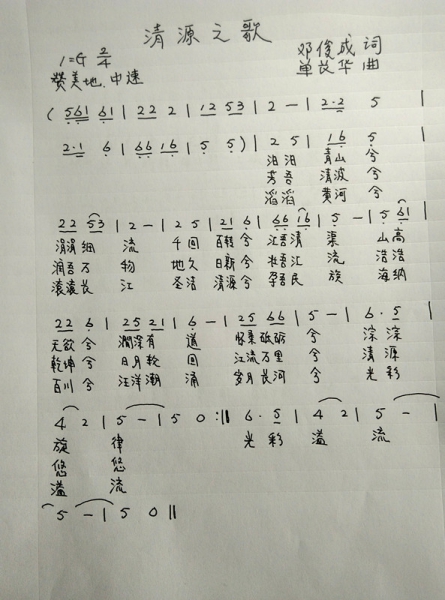 清源之歌
1=G 2/4 邓俊成 词
赞美地.中速 单茂华 曲
( 561 61 | 22 2 | 12 53 | 2 - | 2·2 5 |
2·1 6 | 66 16 | 5 5 ) | 2 5 | 16 5 |
汨汨 青山 兮
芳吾 清波 兮
滔滔 黄河 兮
22 53 | 2 - | 2 5 | 21 6 | 66 16 | 5 - | 5 61 |
涓涓细 流 千回 百转 兮 江吾清 渠 山高
润吾万 物 地久 日新 兮 壮吾江 流 浩浩
滚滚长 江 圣洁 清源 兮 孕吾民 族 海纳
22 6 | 25 21 | 6 - | 25 66 | 5 - | 6·5 |
无欲 兮 涧深有 道 怀柔砥砺 兮 淙淙
乾坤 兮 日月轮 回 江流万里 兮 清源
百川 兮 汪洋潮 涌 岁月长河 兮 光彩
4 2 | 5 - | 5 0 :|| 6·5 | 4 2 | 5 - |
旋 律 光彩 溢 流
悠 悠
溢 流
5 - | 5 0 ||